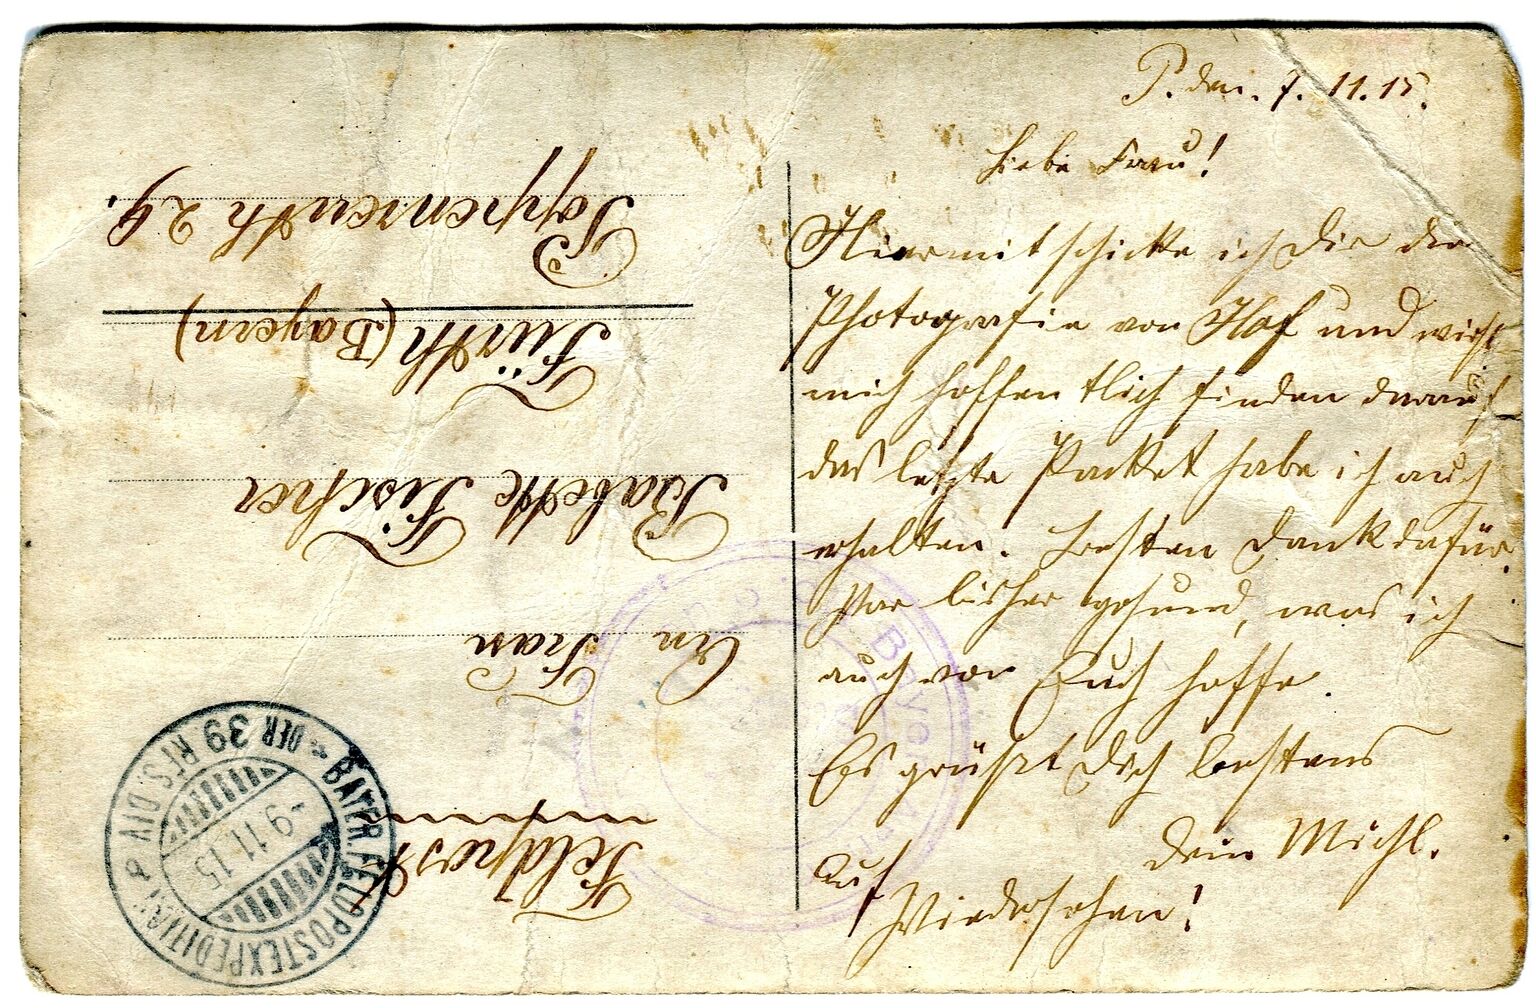 P. den. 7. 11. 15.
Liebe Frau!
Hiermit schicke ich Dir die
Photografie von Hof und wirst
mich hoffentlich finden darauf
das letzte Packet habe ich auch
erhalten. Besten Dank dafür.
bisher gesund, was ich
auch von Euch hoffe.
Es grüßt Dich bestens
dein Michl.
Auf
Wiedersehen!
Feldpost
An Frau
Babette Fischer
Fürth (Bayern)
Poppenreuth 29.
BAYER. FELDPOSTEXPEDITION DER 39 RES. DIV.
-9.11.15